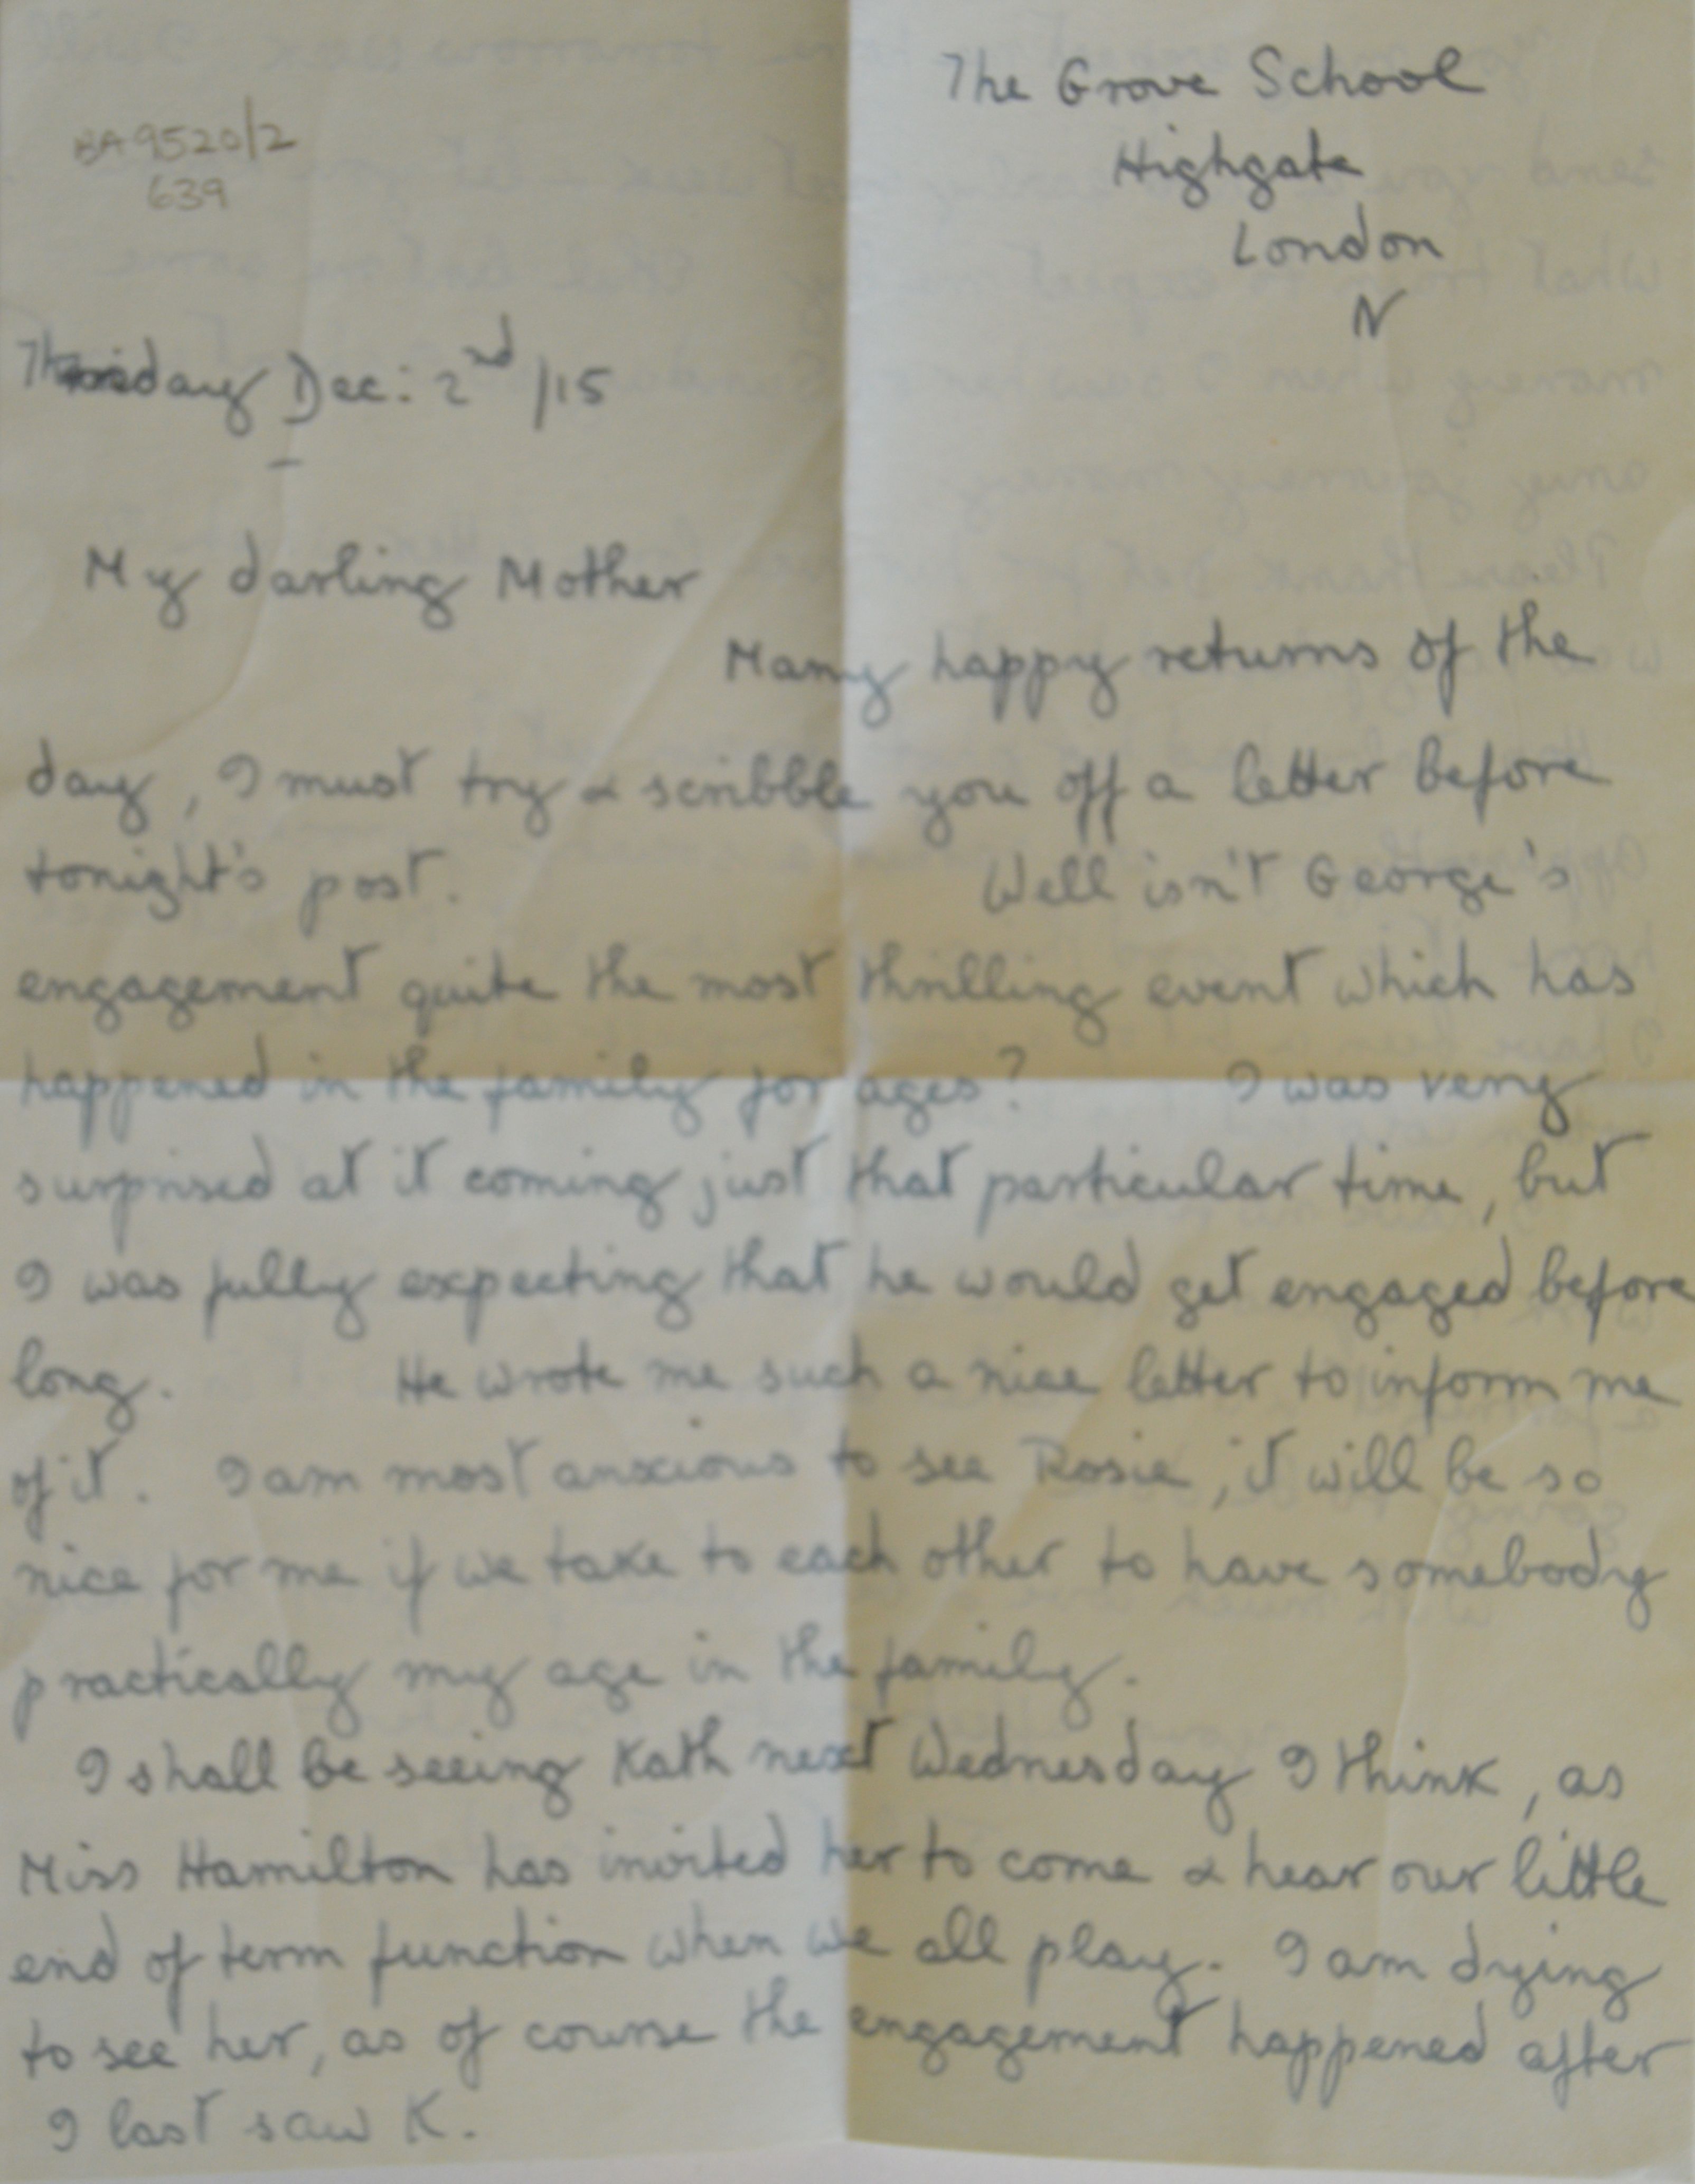 The Grove School
BA9520/2
Highgate
639
London
N
Thursday Dec: 2nd /15
My darling Mother
Many happy returns of the
day, I must try & scribble you off a letter before
tonight's post. Well isn't George's
engagement quite the most thrilling event which has
happened in the family for ages? I was very
surprised at it coming just that particular time, but
I was fully expecting that he would get engaged before
long. He wrote me such a nice letter to inform me
of it. I am most anxious to see Rosie, it will be so
nice for me if we take to each other to have somebody
practically my age in the family.
I shall be seeing Kath next Wednesday I think, as
Miss Hamilton has invited her to come & hear our little
end of term function when we all play. I am dying
to see her, as of course the engagement happened after
I last saw K.